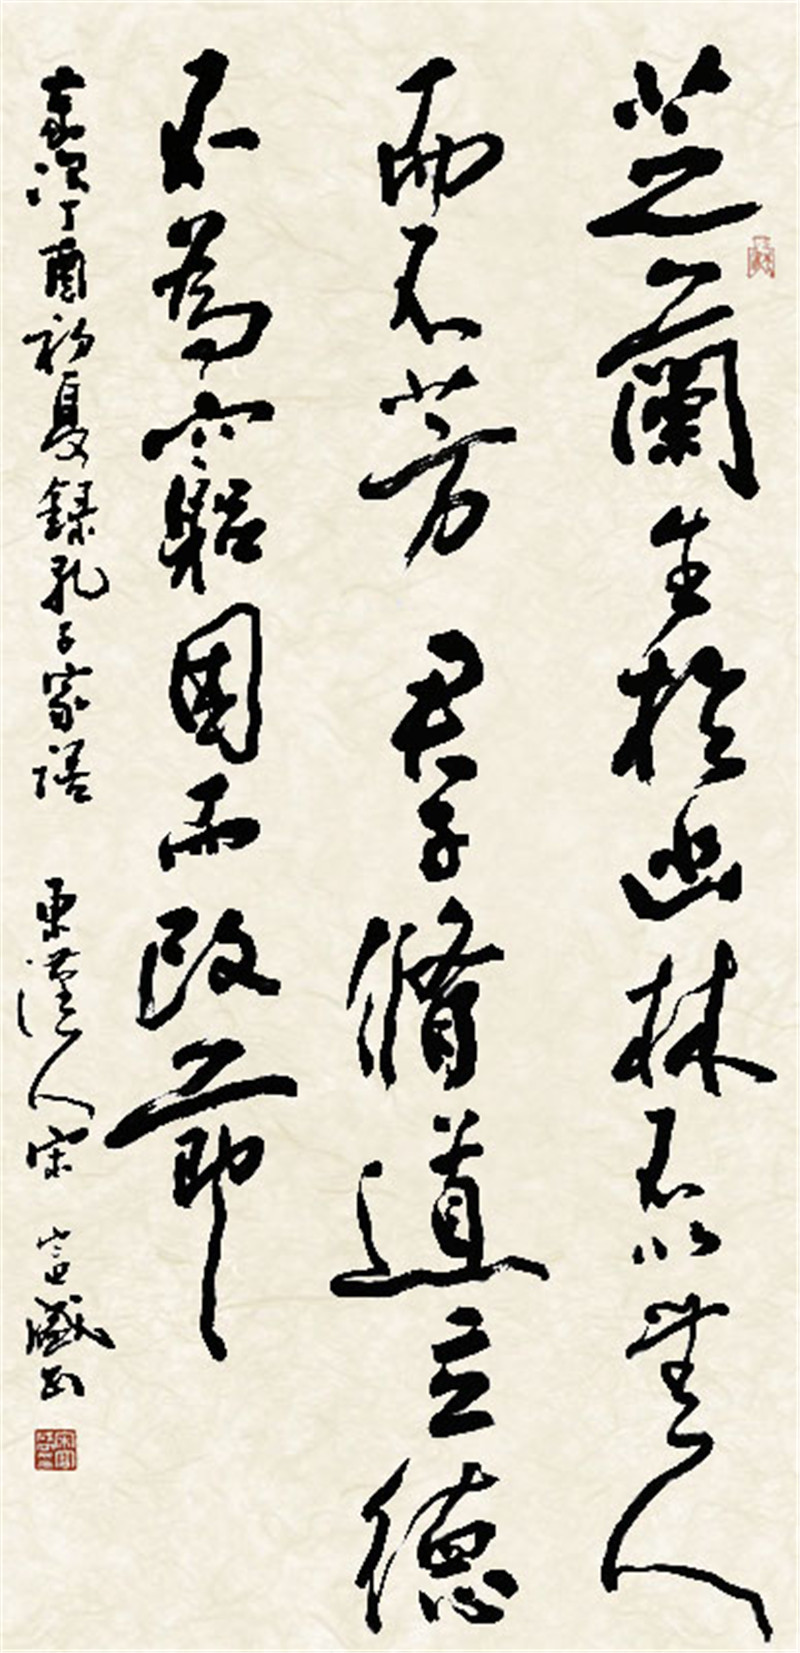 芝蘭生於幽林不以無人
而不芳君子脩道立德
不為窮困而改節
歲次丁酉初夏錄孔子家語 東漢人宋富盛書